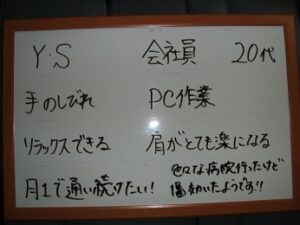 Y.S 会社員 20代
手のしびれ PC作業
リラックスできる 肩がとても楽になる
月1で通い続けたい!
色々な病院行ったけど
1番効いたようです!!